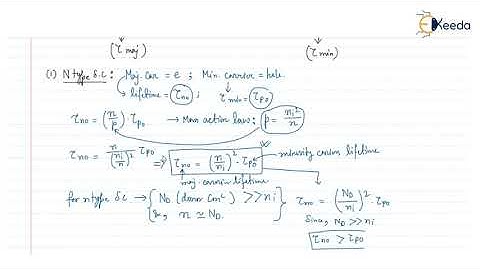 Ekeeda
(τ maj) (τ min)
(1) N type δ.c : Maj. Car = e ; Min. carrier = hole.
↳ lifetime = τno ; τmin = τpo
τno = (n/p) · τpo → Mass action law: p = ni²/n
τno = n/(ni²/n) τpo ⇒ τno = (n/ni)² · τpo → minority carrier lifetime
maj. carrier lifetime
for n type δ.c → { ND (donor Conc) >> ni } τno = (ND/ni)² · τpo
n ≃ ND. Since, ND >> ni
τno > τpo